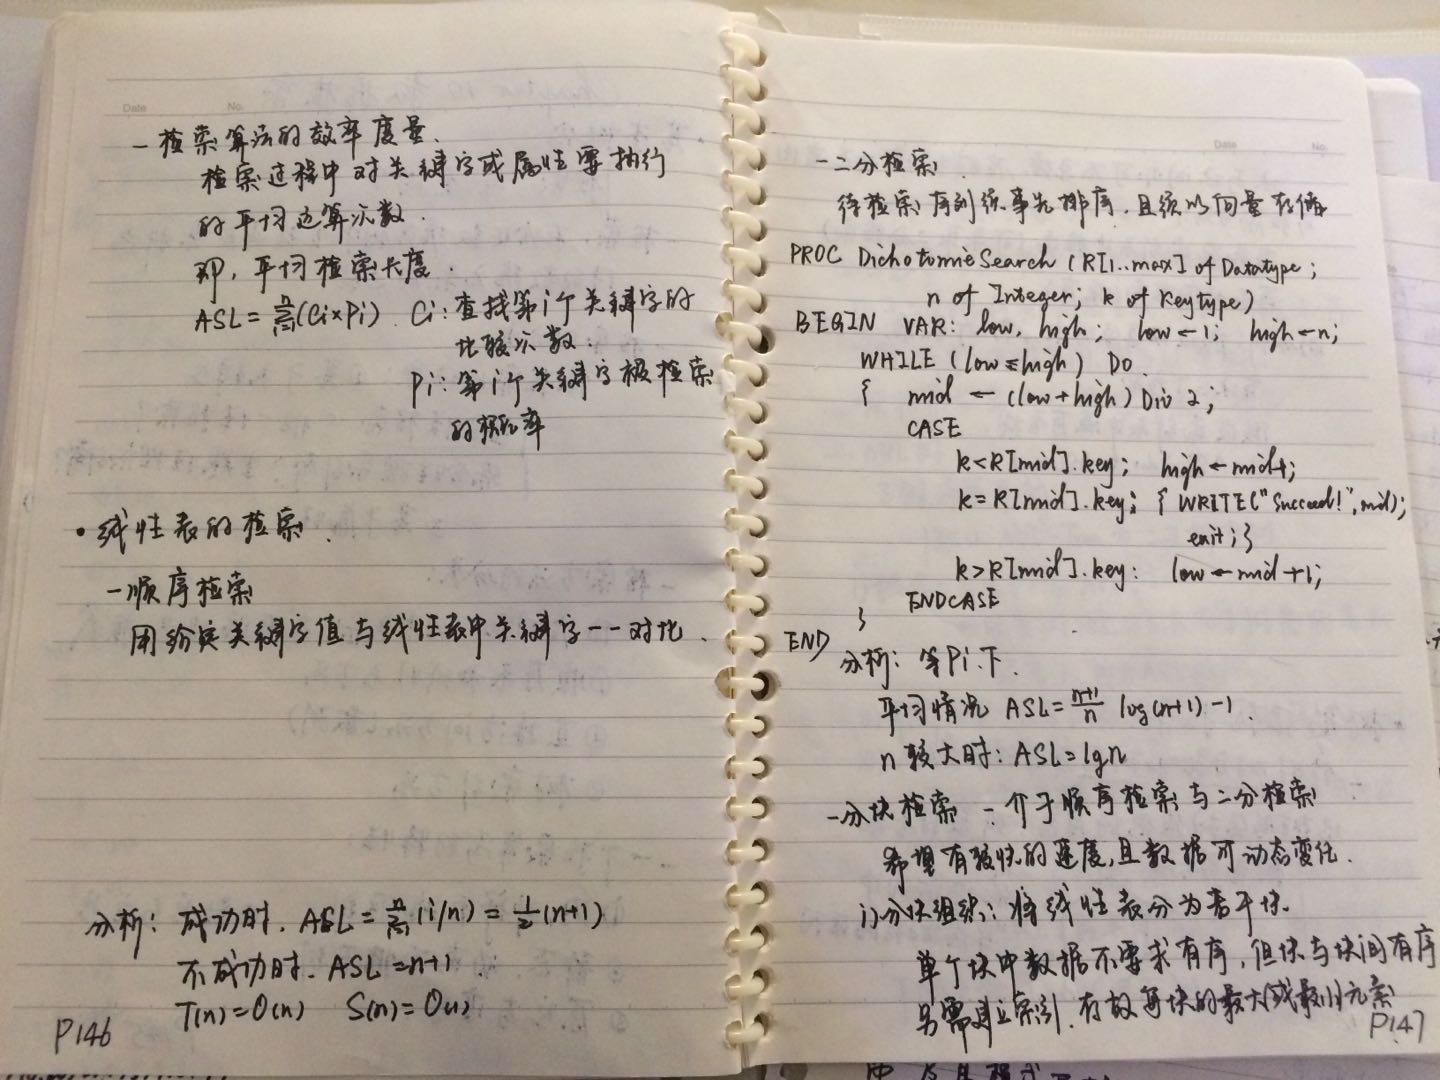 Date No.
- 检索算法的效率度量.
检索过程中对关键字或属性要执行
的平均运算次数.
即, 平均检索长度.
ASL = Σ(Ci×Pi) . Ci: 查找第i个关键字的
比较次数.
Pi: 第i个关键字被检索
的概率
• 线性表的检索.
- 顺序检索
用给定关键字值与线性表中关键字一一对比.
分析: 成功时. ASL = Σ(i/n) = 1/2(n+1)
不成功时. ASL = n+1
T(n) = O(n) S(n) = O(1)
P146
Date No.
- 二分检索.
待检索序列须事先排序. 且须以向量存储
PROC DichotomicSearch (R[1..max] of Datatype;
n of Integer; k of Keytype)
BEGIN VAR: low, high; low←1; high←n;
WHILE (low≤high) DO.
{ mid ← (low+high) Div 2;
CASE
k<R[mid].key; high←mid-1;
k=R[mid].key; { WRITE("Succeed!", mid);
exit; }
k>R[mid].key: low←mid+1;
ENDCASE
}
END
分析: 等Pi下.
平均情况 ASL = n+1/n log(n+1) - 1.
n较大时: ASL = lgn
- 分块检索 - 介于顺序检索与二分检索
希望有较快的速度, 且数据可动态变化.
i) 分块组织: 将线性表分为若干块.
单个块中数据不要求有序, 但块与块间有序
另需建立索引. 存放每块的最大(或最小)元素
P147